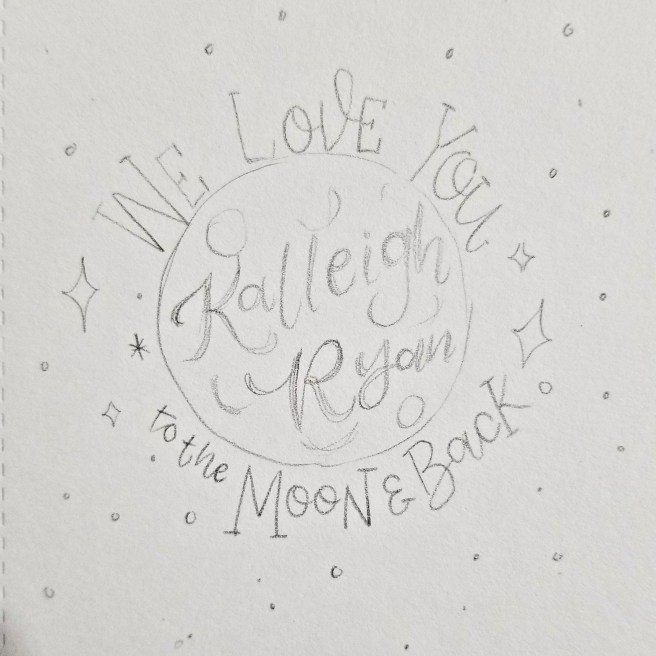 We Love You
Kalleigh
Ryan
to the Moon & Back